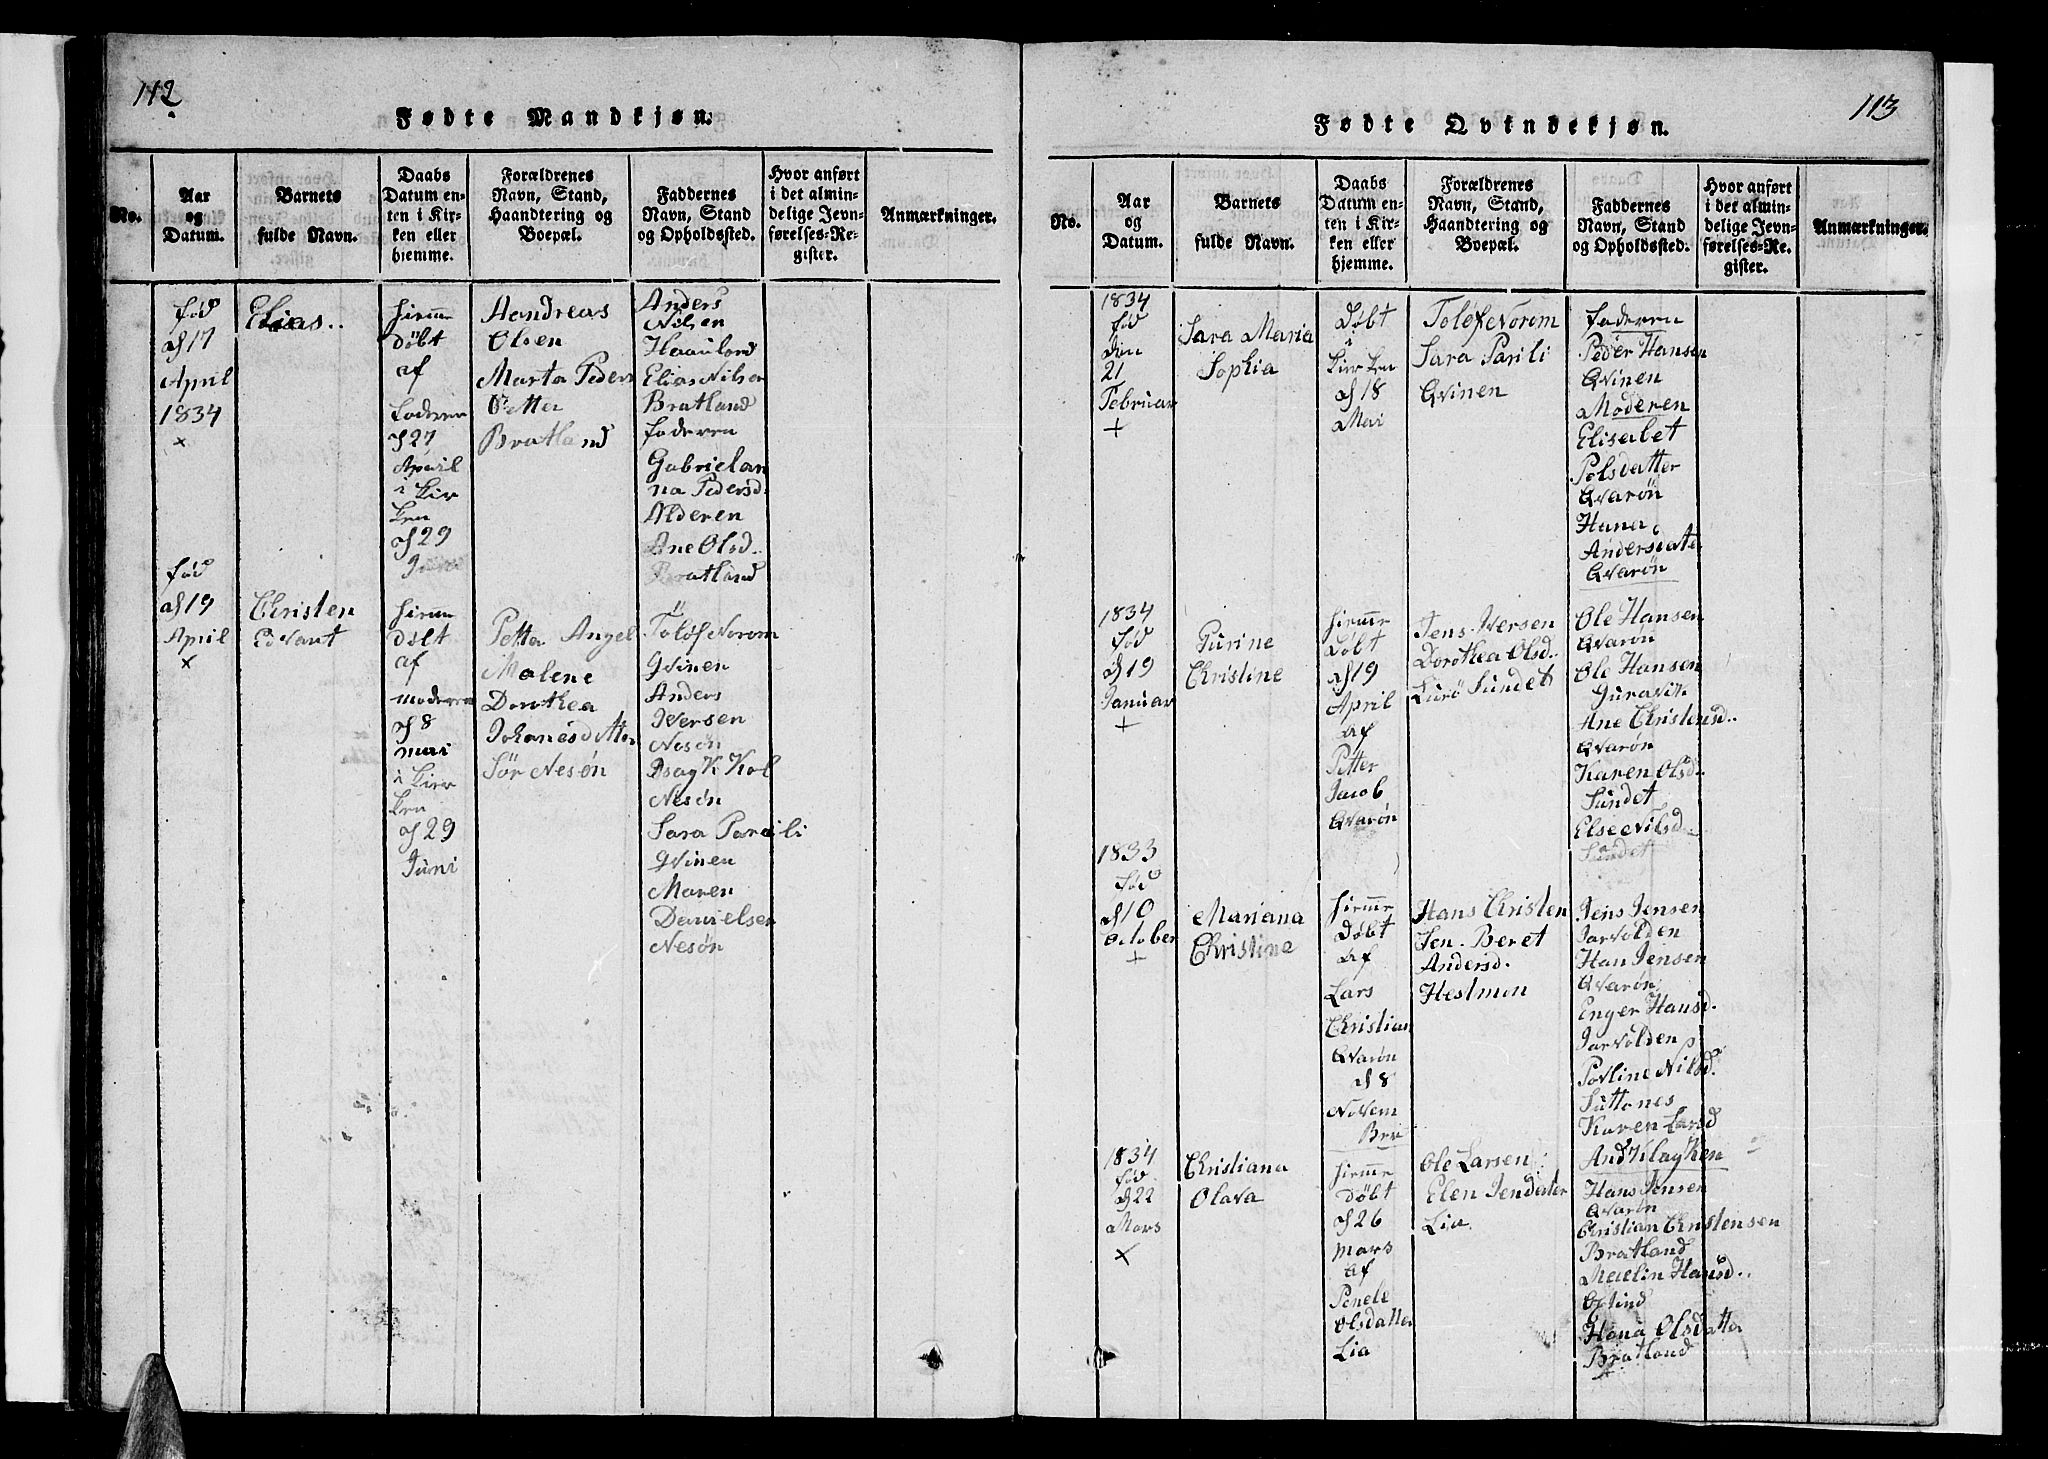 112
Fødte Mandkjøn.
No.
Aar
og
Datum.
Barnets
fulde Navn.
Daabs
Datum en-
ten i Kir-
ken eller
hjemme.
Forældrenes
Navn, Stand,
Haandtering og
Boepæl.
Faddernes
Navn, Stand
og Opholdssted.
Hvor anført
i det almin-
delige Jevn-
førelses-Re-
gister.
Anmærkninger.
fød
d 17
April
1834
×
Elias..
hiemme
døbt
af
faderen
d 27
April
i Kir
ken
d 29
Juni
Aandreas
Olsen
Marta Peders
Detter
Bratland
Anders
Nilsen
Haaulord
Elias Nilsen
Bratland
faderen
Gabrielan
na Pedersd.
Alderen
Ane Olsd..
Bratland
fød
d 19
April
×
Christen
Edvart
hiemme
døbt
af
moderen
d 8
mai
i Kirr
ken
d 29
Juni
Petter Angel
Malene
Dorothea
Johanisdatter
Sör Nesøn
Tolöf Norom
Qvinen
Anders
Iversen
Nesøn
Isayk Kol
Nesön
Sara Parsili
Qvinen
Maren
Danielsen
Nesøn
113
Fødte Qvindekjøn.
No.
Aar
og
Datum.
Barnets
fulde Navn.
Daabs
Datum en-
ten i Kir-
ken eller
hjemme.
Forældrenes
Navn, Stand,
Haandtering og
Boepæl.
Faddernes
Navn, Stand
og Opholdssted.
Hvor anført
i det almin-
delige Jevn-
førelses-Re-
gister.
Anmærkninger.
1834
fød
Den
21
Februar
+
Sara Maria
Sophia
Døbt
i
Kirrken
d 18
Mai
Tolöf Norom
Sara Parili
Qvinen
Faderen
Peder Hansen
Qvinen
Moderen
Elisabet
Polsdatter
Qvarön
Hana
Andersdater
Qvarön
1834
fød
d 19
Januar
+
Gurine
Christine
hiemme
Døbt
d 19
April
af
Petter
Jacob
Qvarön
Jens Iversen
Dorothea Olsd..
Lurö Sundet
Ole Hansen
Qvarön
Ole Hansen
Guravik
Ane Christensd..
Qvarön
Karen Olsd..
Sundet
Else Nilsd..
Sundet
1833
fød
d 10
October
+
Mariana
Christine
hiemme
Døbt
af
Lars
Christian
Qvarön
d 8
Novem
Ber
Hans Christen
Sen. Beret
Andersd.
Hestmon
Jens Jensen
Jarvolden
Han Jensen
Qvarön
Enger Hansd.
Jarvolden
Povline Nilsd.
Suttones
Karen Larsd
1834
fød
d 22
Mars
×
Christiana
Olava
hiemme
døbt
d 26
mars
af
Penele
Olsdatter
Lia
Ole Larsen
Elen Jensdater
Lia
Hans Jensen
Qvarön
Christian Christensen
Bratland
Maelin Hansd..
Hana Olsdatter
Bratland